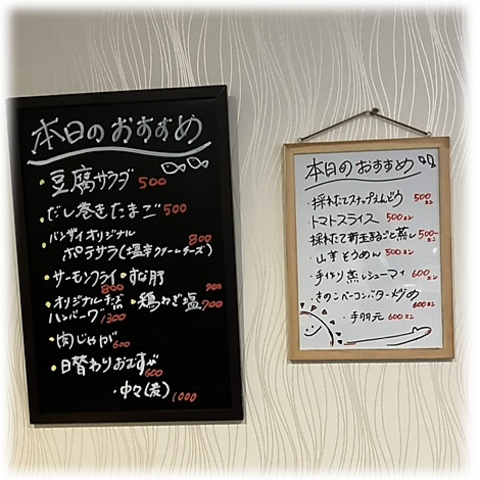 本日のおすすめ
豆腐サラダ 500
だし巻きたまご 500
バンザイオリジナル
ポテサラ(塩辛クリームチーズ) 800
サーモンフライ 800 ・すな肝 700
オリジナルチーズ
ハンバーグ 1300 ・鶏ねぎ塩 900
肉じゃが 600
日替わりおでん 600
・中々(麦) 1000
本日のおすすめ
・採れたてスナップえんどう 500エン
トマトスライス 500エン
採れたて新玉まるごと蒸し 500エン
・山芋そうめん 500エン
・手作り蒸しシューマイ 600エン
・きのこベーコンバター炒め 600エン
・手羽元 600エン